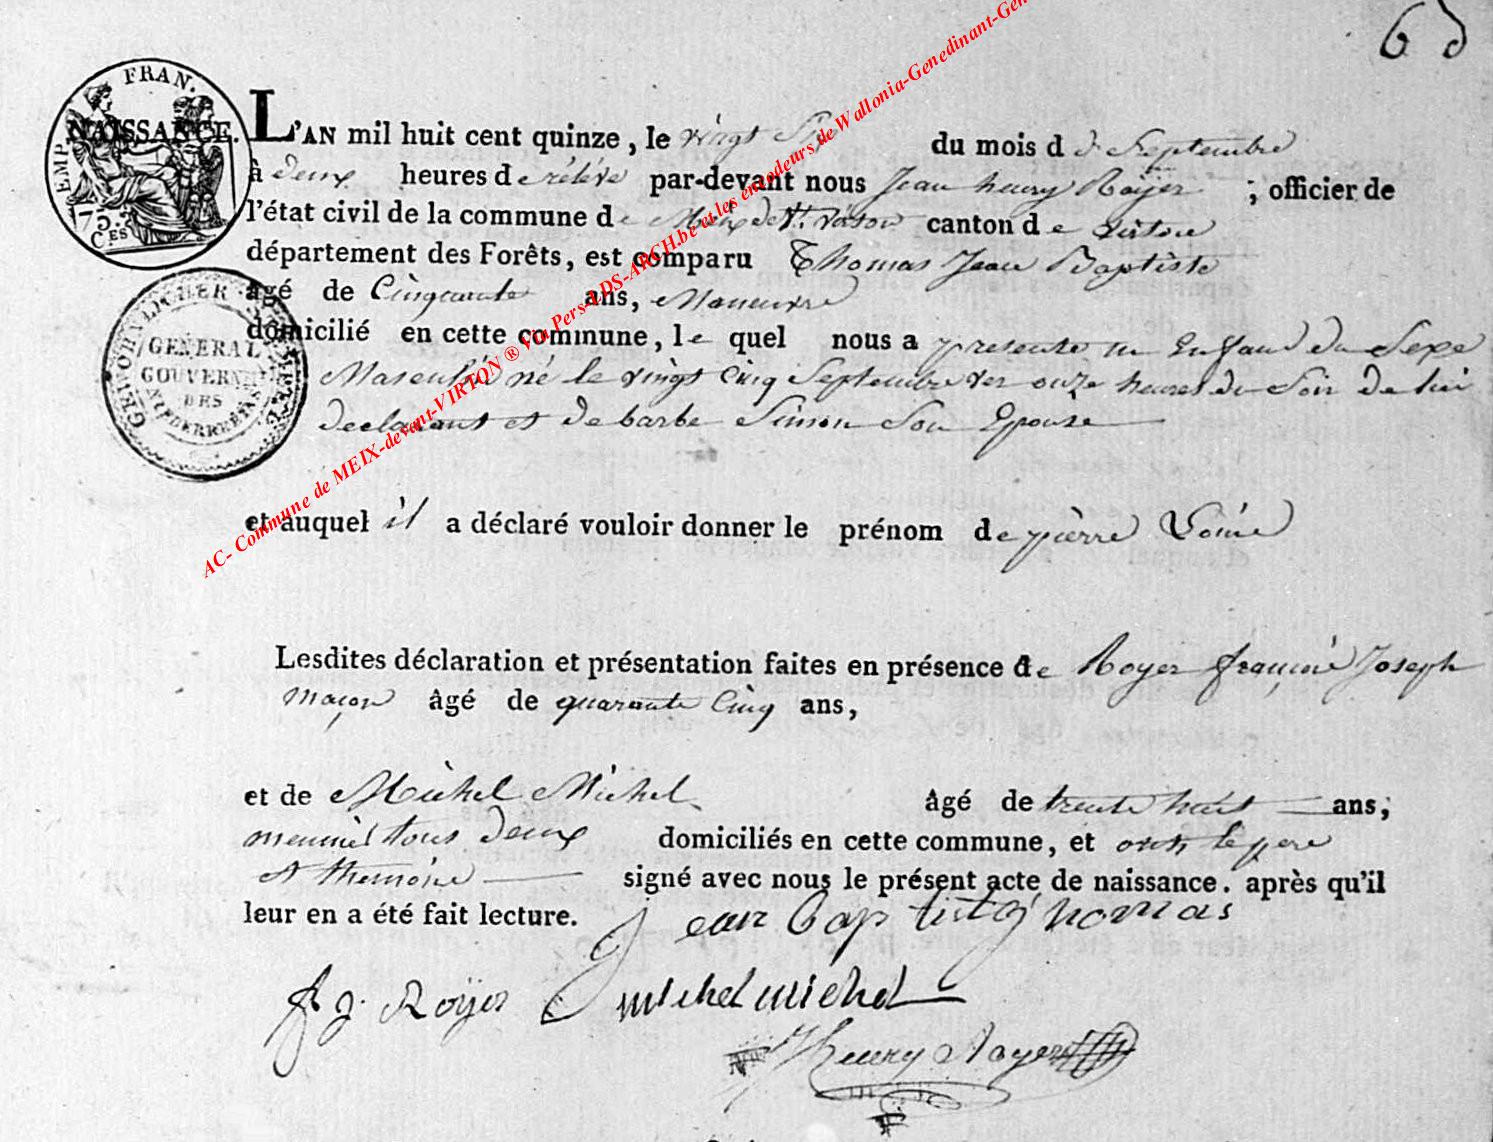 6 d
FRAN.
EMP
75 CES
NAISSANCE. L'AN mil huit cent quinze, le vingt Six du mois d de Septembre
à deux heures de rélévé par-devant nous Jean henry Roÿer ; officier de
l'état civil de la commune de Meix devt. virton canton de virton
département des Forêts, est comparu Thomas Jean Baptiste
âgé de Cinquante ans, Maneuvre
domicilié en cette commune, le quel nous a presente un Enfant du Sexe
Masculin né le vingt Cinq Septembre ver onze heures du Soir de lui
declarant et de barbe Simon Son Epouse
GENERAL
GOUVERN
DES
NIEDERRHEINS
et auquel il a déclaré vouloir donner le prénom de pierre Louis
Lesdites déclaration et présentation faites en présence de Royer françois Joseph
maçon âgé de quarante Cinq ans,
et de Michel Michel âgé de trente huit ans,
meunier tous deux domiciliés en cette commune, et ont le pere
et themoins signé avec nous le présent acte de naissance. après qu'il
leur en a été fait lecture. Jean baptist thomas
f j. Roÿer michel michel
JHenry Royer
AC- Commune de MEIX-devant-VIRTON ® Via Pers-LDS-ARCH.be et les encodeurs de Wallonia-Genedinant-Gen